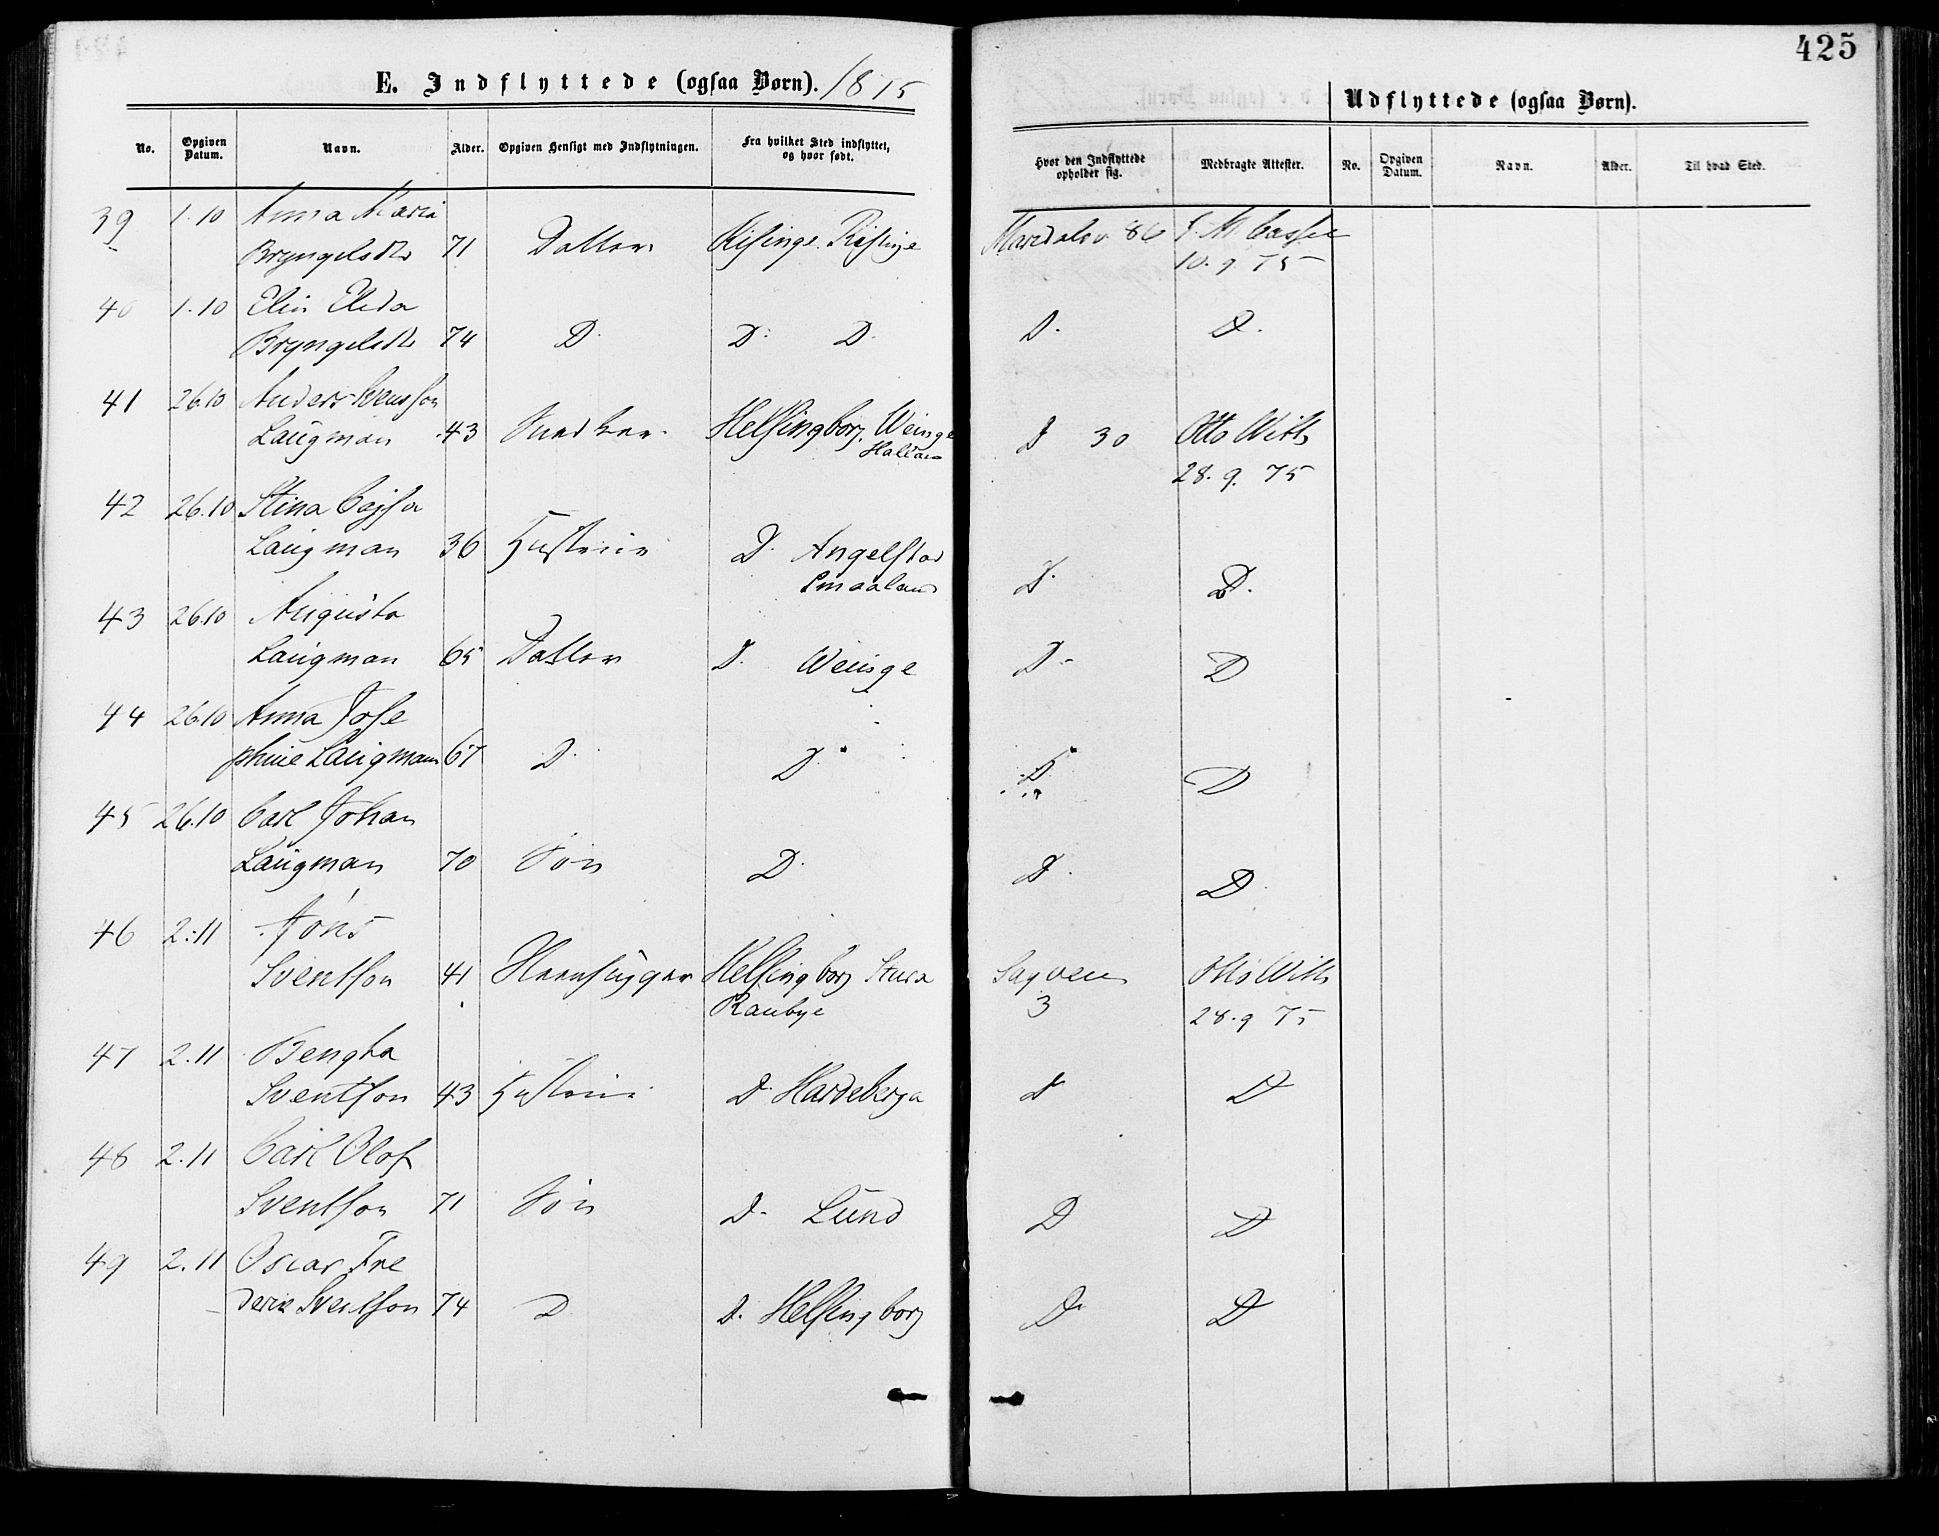 425
E. Indflyttede (ogsaa Børn). 1875
Udflyttede (ogsaa Børn).
No. Opgiven Datum. Navn. Alder. Opgiven Hensigt med Indflytningen. Fra hvilket Sted indflyttet, og hvor født.
Hvor den Indflyttede opholder sig. Medbragte Attester. No. Opgiven Datum. Navn. Alder. Til hvad Sted.
39 1.10 Anna Maria
Bryngelsdtr 71 Datter Risinge Risinge 86
10.9.75
40 1.10 Elin Elida
Bryngelsdtr 74 D. D. D. D. D.
41 26.10 Anders Svensson
Laugman 43 Snedker Helsingborg. Weinge D 30 Otto Witt
Halland 28.9.75
42 26.10 Stina Cajsa
Laugman 36 Hustru D. Angelstad D. D.
Smaaland
43 26.10 Augusta
Laugman 65 Datter D. Weinge D. D
44 26.10 Anna Jose
phine Laugman 67 D. D. D D
45 26.10 Carl Johan
Laugman 70 Søn D. D. D.
46 2.11 Jöns
Sventson 41 Steenhugger Helsingborg Stura Sagveien Otto Witt
Raubye 3 28.9 75
47 2.11 Bengta
Sventson 43 Hustru D. Hardeberga D D
48 2.11 Carl Olof
Sventson 71 Søn D. Lund D D
49 2.11 Oscar Fre
derik Sventson 74 D D. Helsingborg D. D